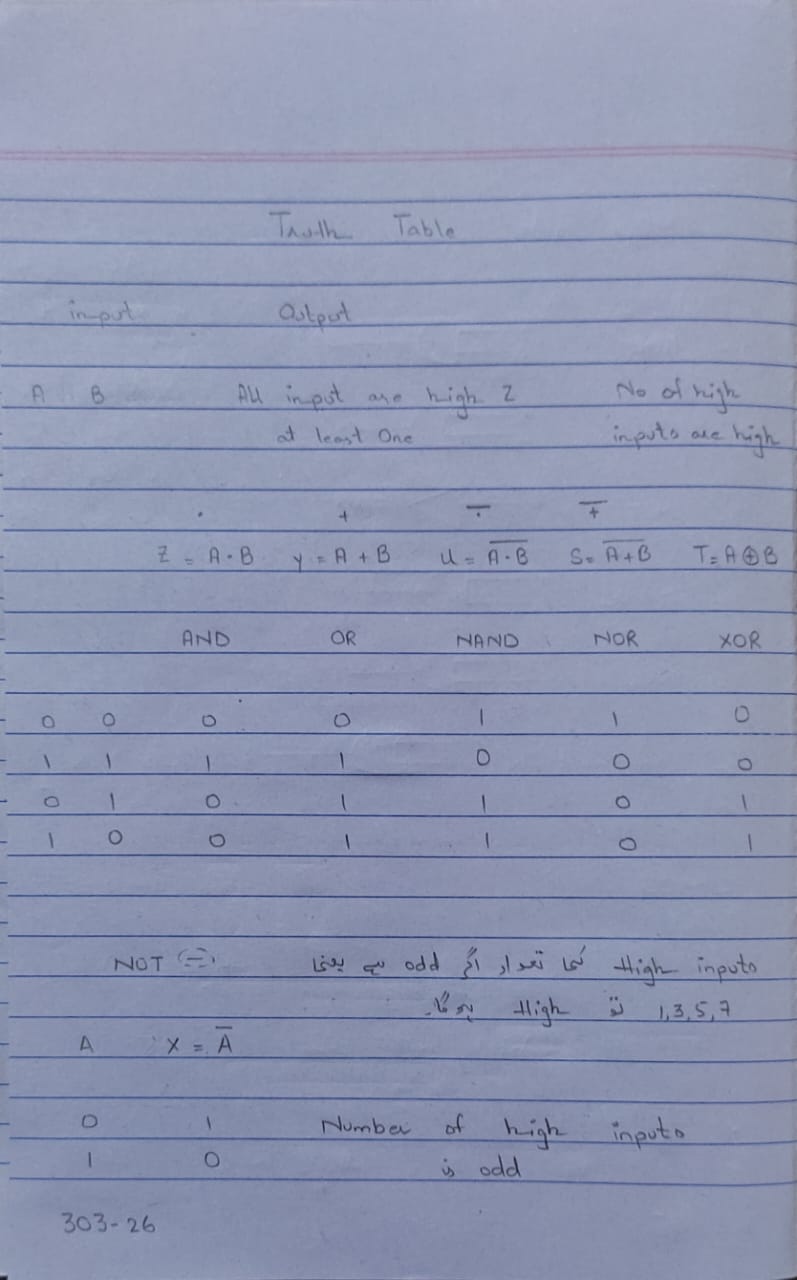 Truth Table
input Output
A B All input are high Z No of high
at least One inputs are high
. + ∸ +̅
Z = A . B y = A + B U = \overline{A . B} S = \overline{A + B} T = A ⊕ B
AND OR NAND NOR XOR
0 0 0 0 1 1 0
1 1 1 1 0 0 0
0 1 0 1 1 0 1
1 0 0 1 1 0 1
NOT (-)
High inputs کی تعداد اگر odd ہے یعنی
1,3,5,7 تو High ہوگا۔
A X = A̅
0 1 Number of high inputs
1 0 is odd
303-26